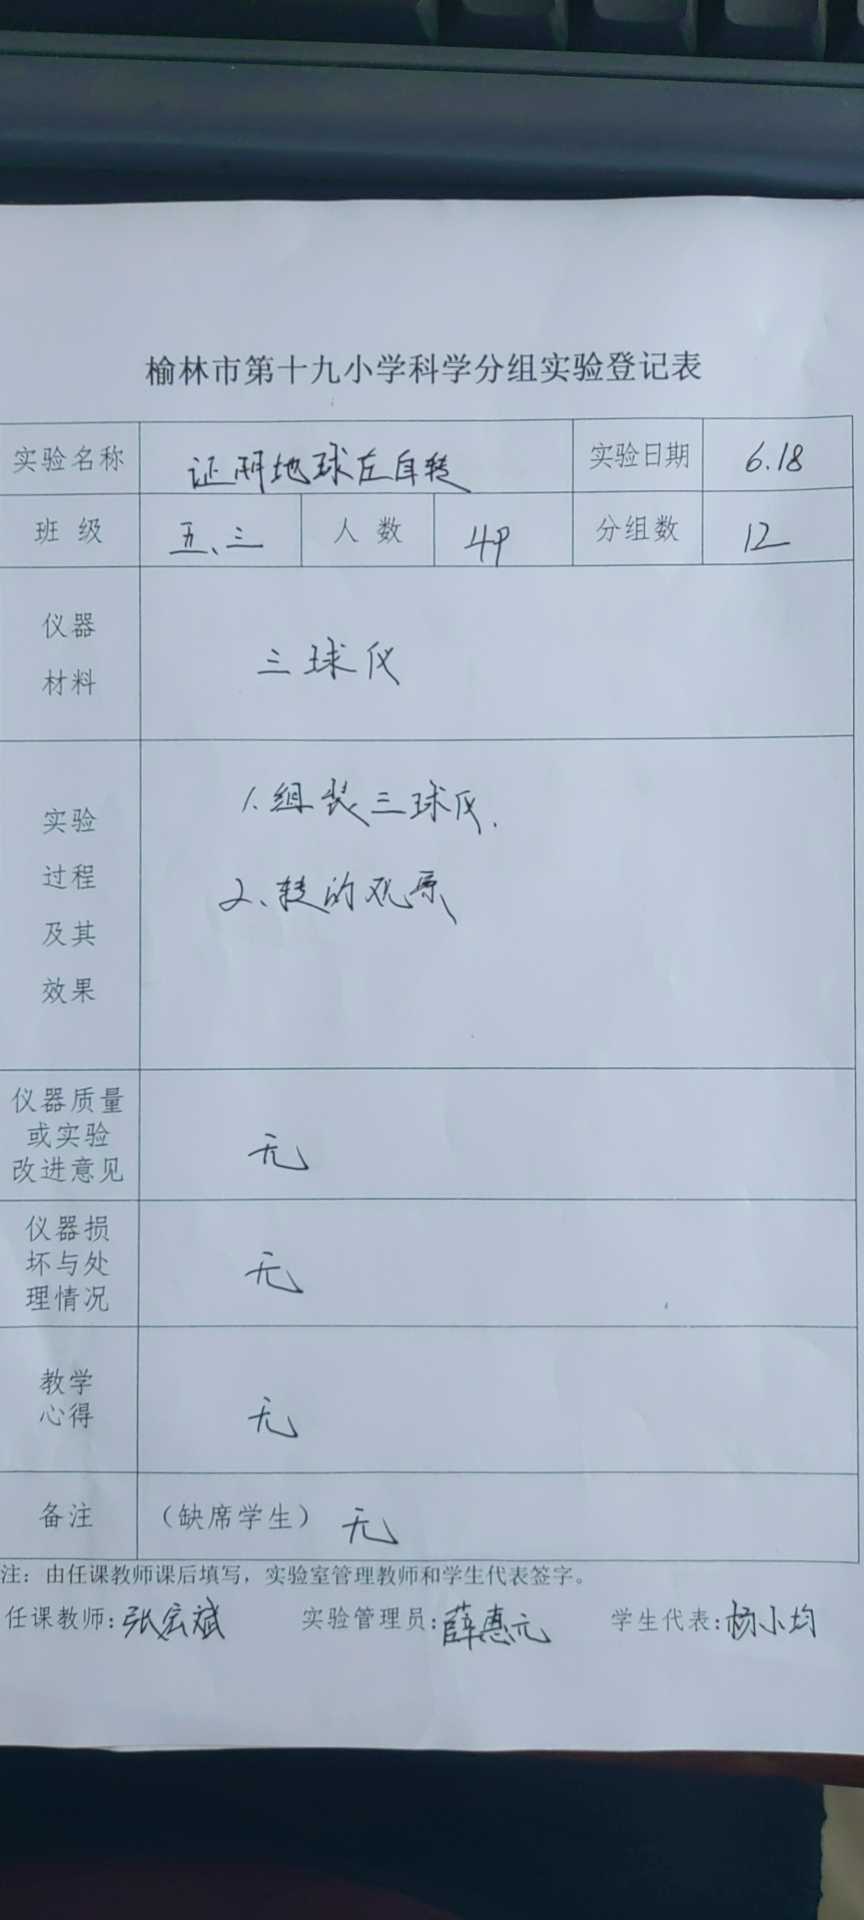 榆林市第十九小学科学分组实验登记表
实验名称 证明地球在自转 实验日期 6.18
班 级 五、三 人 数 49 分组数 12
仪器
材料
三球仪
实验
过程
及其
效果
1.组装三球仪.
2、转的观察
仪器质量
或实验
改进意见
无
仪器损
坏与处
理情况
无
教学
心得
无
备注 (缺席学生) 无
注：由任课教师课后填写，实验室管理教师和学生代表签字。
任课教师:张宏斌 实验管理员:薛惠元 学生代表:杨小均